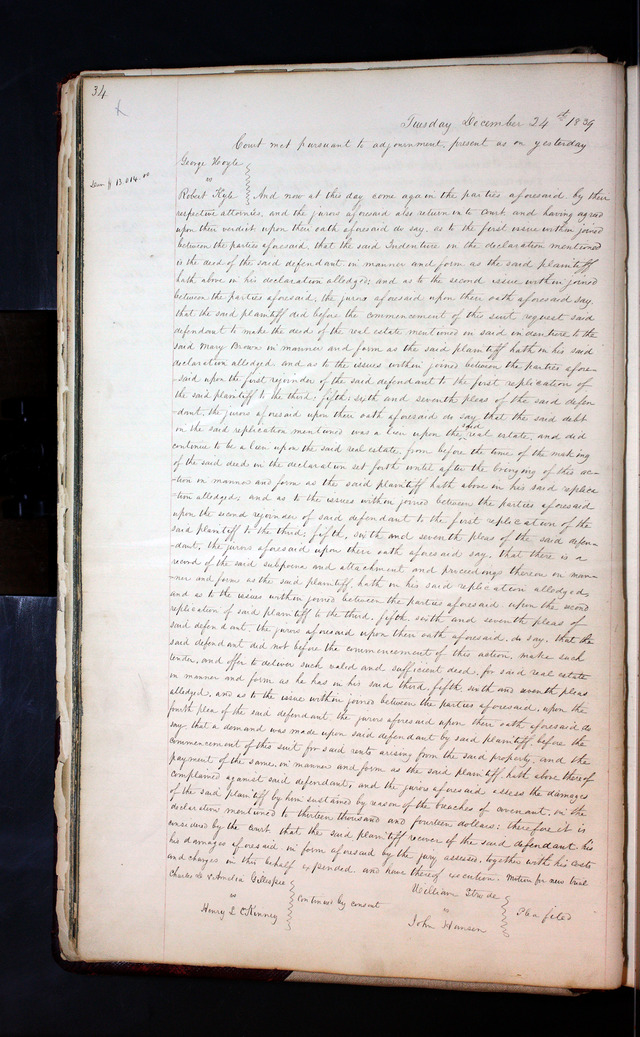 34
Tuesday December 24th 1839
Court met pursuant to adjournment, present as on yesterday
George Hoyle
vs
Robert Kyle } And now at this day come again the parties aforesaid by their
respective attornies, and the jurors aforesaid also return into Court and having agreed
upon their verdict upon their oath aforesaid do say, as to the first issue within joined
between the parties aforesaid, that the said Indenture in the declaration mentioned
is the deed of the said defendant in manner and form as the said plaintiff
hath above in his declaration alledged; and as to the second issue within joined
between the parties aforesaid, the jurors aforesaid upon their oath aforesaid say,
that the said plaintiff did before the commencement of this suit, request said
defendant to make the deeds of the real estate mentioned in said indenture to the
said Mary Brown in manner and form as the said plaintiff hath in his said
declaration alledged and as to the issues within joined between the parties afore-
-said upon the first rejoinder of the said defendant to the first replication of
the said plaintiff to the third, fifth, sixth and seventh pleas of the said defen-
-dant, the jurors aforesaid upon their oath aforesaid do say that the said debt
in the said replication mentioned was a lien upon the said real estate, and did
continue to be a lien upon the said real estate, from before the time of the making
of the said deed in the declaration set forth until after the bringing of this ac-
-tion in manner and form as the said plaintiff hath above in his said replica
-tion alledged, and as to the issues within joined between the parties aforesaid
upon the second rejoinder of said defendant to the first replication of the
said plaintiff to the third, fifth, sixth and seventh pleas of the said defen-
-dant, the jurors aforesaid upon their oath aforesaid say, that there is a
record of the said subpoena and attachment and proceedings thereon in man-
-ner and form as the said plaintiff hath in his said replication alledged,
and as to the issues within joined between the parties aforesaid upon the second
replication of said plaintiff to the third, fifth, sixth and seventh pleas of
said defendant, the jurors aforesaid upon their oath aforesaid, do say, that the
said defendant did not before the commencement of this action, make such
tender, and offer to deliver such valid and sufficient deed, for said real estate
in manner and form as he has in his said third, fifth sixth and seventh pleas
alledged, and as to the issue within joined between the parties aforesaid, upon the
fourth plea of the said defendant the jurors aforesaid upon their oath aforesaid do
say, that a demand was made upon said defendant by said plaintiff, before the
commencement of this suit for said rents arising from the said property, and the
payment of the same, in manner and form as the said plaintiff hath above thereof
complained against said defendant, and the jurors aforesaid assess the damages
of the said plaintiff by him sustained by reason of the breaches of covenant, in the
declaration mentioned to thirteen thousand and fourteen dollars; therefore it is
considered by the court that the said plaintiff recover of the said defendant his
his damages aforesaid in form aforesaid by the jury assessed, together with his costs
and charges in this behalf expended and have thereof execution. Motion for new trial
Charles & Amelia Gillespie
vs
Henry L. McKinney } Continued by consent
William Strode
vs
John Hanson } Plea filed